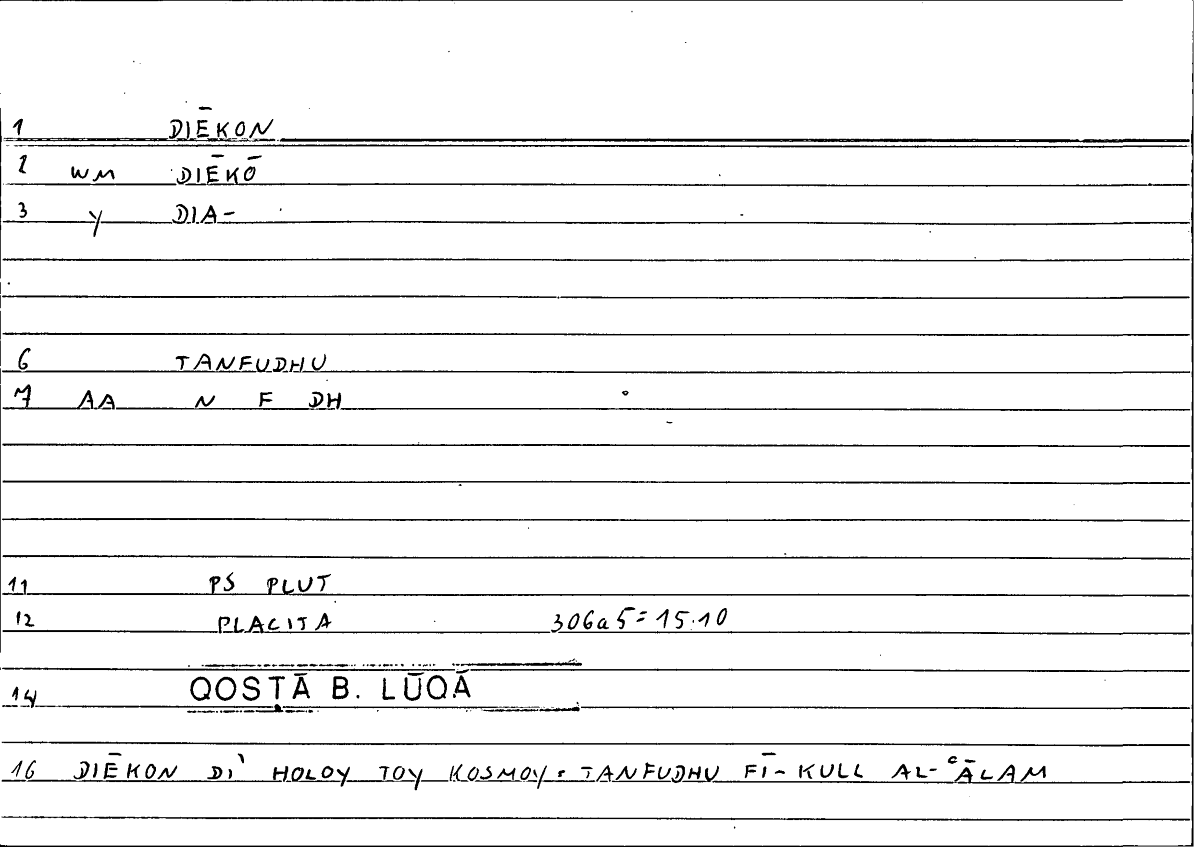 1 DIĒKON
2 WM DIĒKŌ
3 Y DIA-
6 TANFUDHU
7 AA N F DH
11 PS PLUT
12 PLACITA 306a5=15.10
14 QOSṬĀ B. LŪQĀ
16 DIĒKON DI' HOLOY TOY KOSMOY = TANFUDHU FĪ-KULL AL-ʿĀLAM